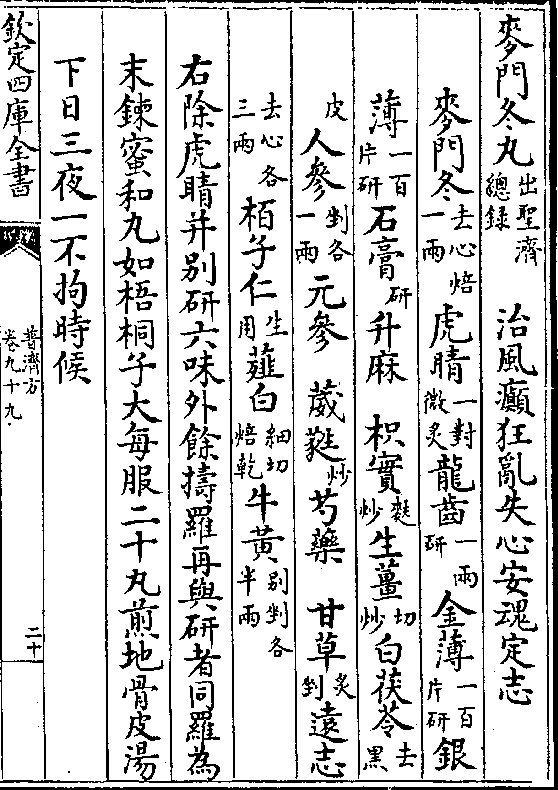 麥門冬丸出聖濟總録　治風癲狂亂失心安魂定志
麥門冬去心焙一兩虎睛一對微炙龍齒一兩研金薄一百片研銀
薄一百片研石膏研升麻　枳實麩炒生薑切炒白茯苓去黑
皮人參剉各一兩元參　葳蕤炒芍藥　甘草炙剉遠志
去心各三兩栢子仁生用薤白細切焙乾牛黄别剉各半兩
右除虎睛并别研六味外餘擣羅再與研者同羅為
末鍊蜜和丸如梧桐子大每服二十丸煎地骨皮湯
下日三夜一不拘時候
欽定四庫全書
普濟方
卷九十九
二十